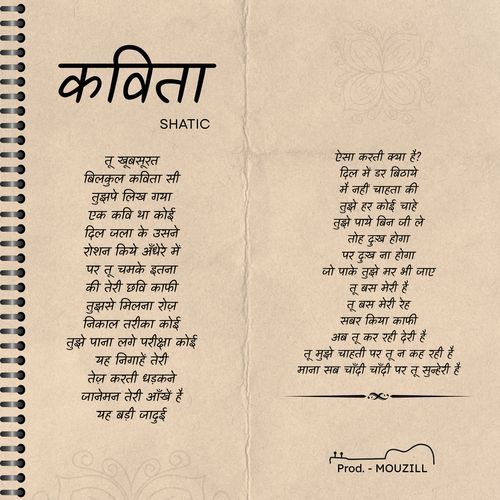 कविता
SHATIC
तू खूबसूरत
बिलकुल कविता सी
तुझपे लिख गया
एक कवि था कोई
दिल जला के उसने
रोशन किये अँधेरे में
पर तू चमके इतना
की तेरी छवि काफी
तुझसे मिलना रोज़
निकाल तरीका कोई
तुझे पाना लगे परीक्षा कोई
यह निगाहें तेरी
तेज़ करती धड़कने
जानेमन तेरी आँखें है
यह बड़ी जादुई
ऐसा करती क्या है?
दिल में डर बिठाये
में नही चाहता की
तुझे हर कोई चाहे
तुझे पाये बिन जी ले
तोह दुःख होगा
पर दुःख ना होगा
जो पाके तुझे मर भी जाए
तू बस मेरी है
तू बस मेरी रेह
सबर किया काफी
अब तू कर रही देरी है
तू मुझे चाहती पर तू न कह रही है
माना सब चाँदी चाँदी पर तू सुन्हेरी है
Prod. - MOUZILL